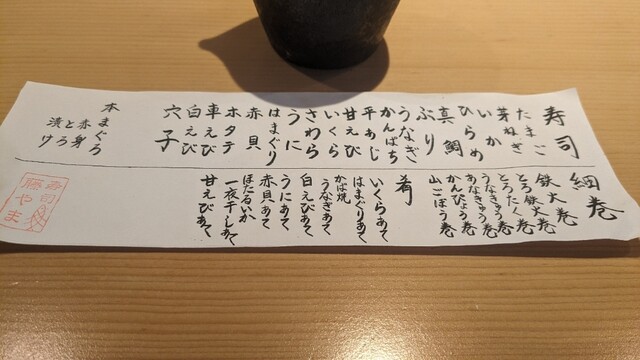 寿司
たまご
芽ねぎ
いか
ひらめ
真鯛
ぶり
うなぎ
かんぱち
平あじ
甘えび
いくら
さわら
うに
はまぐり
赤貝
ホタテ
車えび
白えび
穴子
本まぐろ
赤身
とろ
漬け
細巻
鉄火巻
とろ鉄火巻
とろたく巻
うなきゅう巻
あなきゅう巻
かんぴょう巻
山ごぼう巻
肴
いくらあて
はまぐりあて
かば焼
うなぎあて
白えびあて
うにあて
赤貝あて
ほたるいか
一夜干しあて
甘えびあて
寿司
藤やま